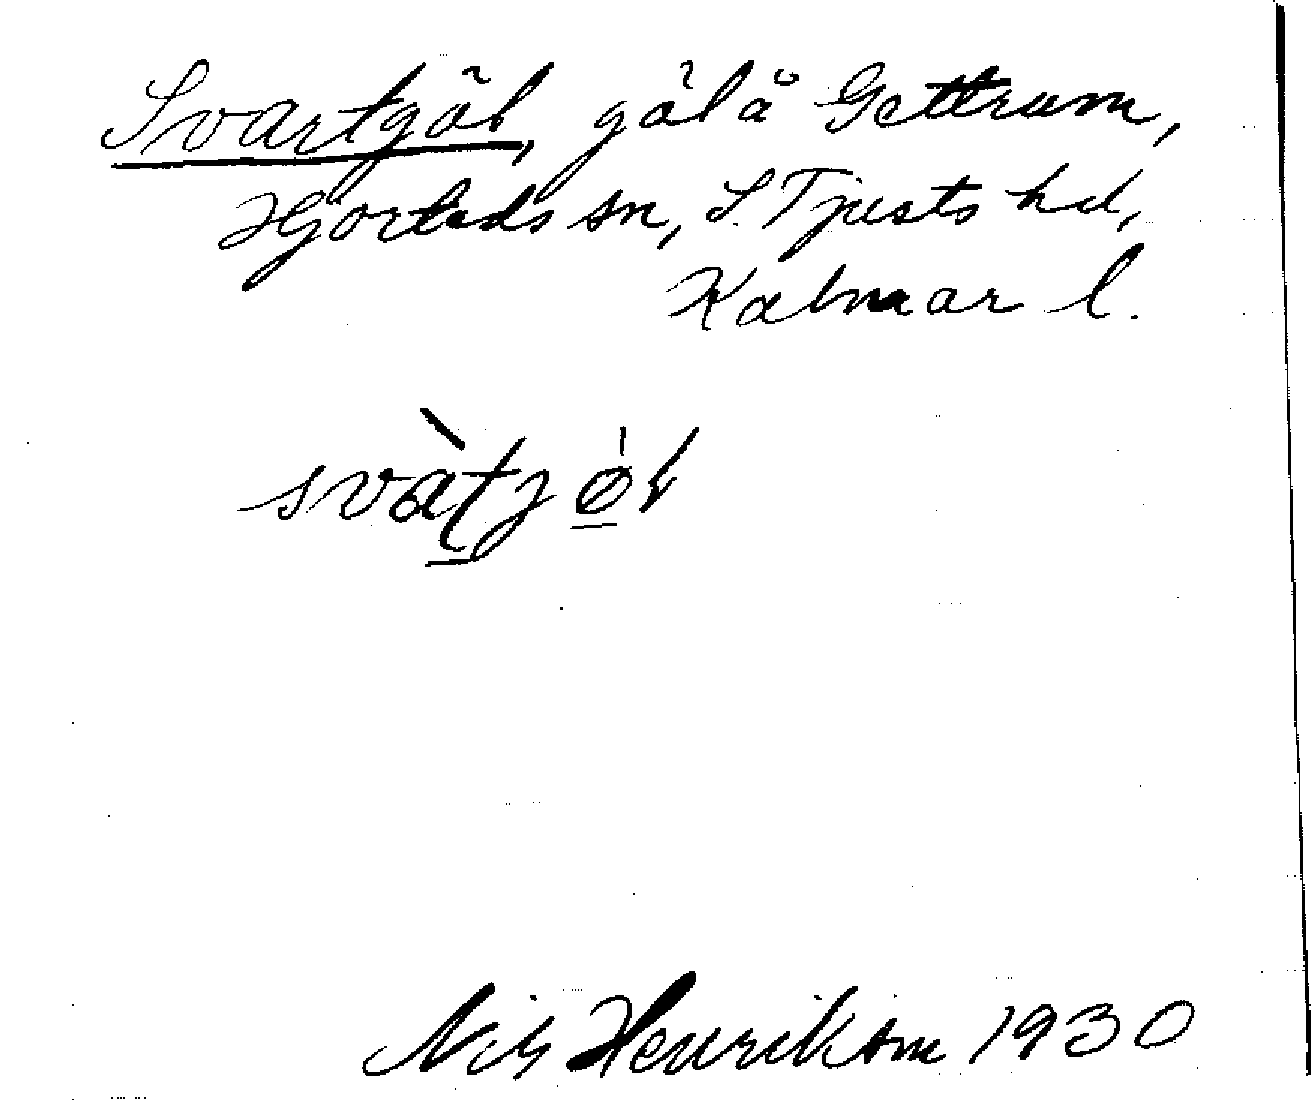 Svartgöl, göl å Gettrum,
Hjorteds sn, S. Tjusts hd,
Kalmar l.
svàtjøl
Nils Henrikson 1930